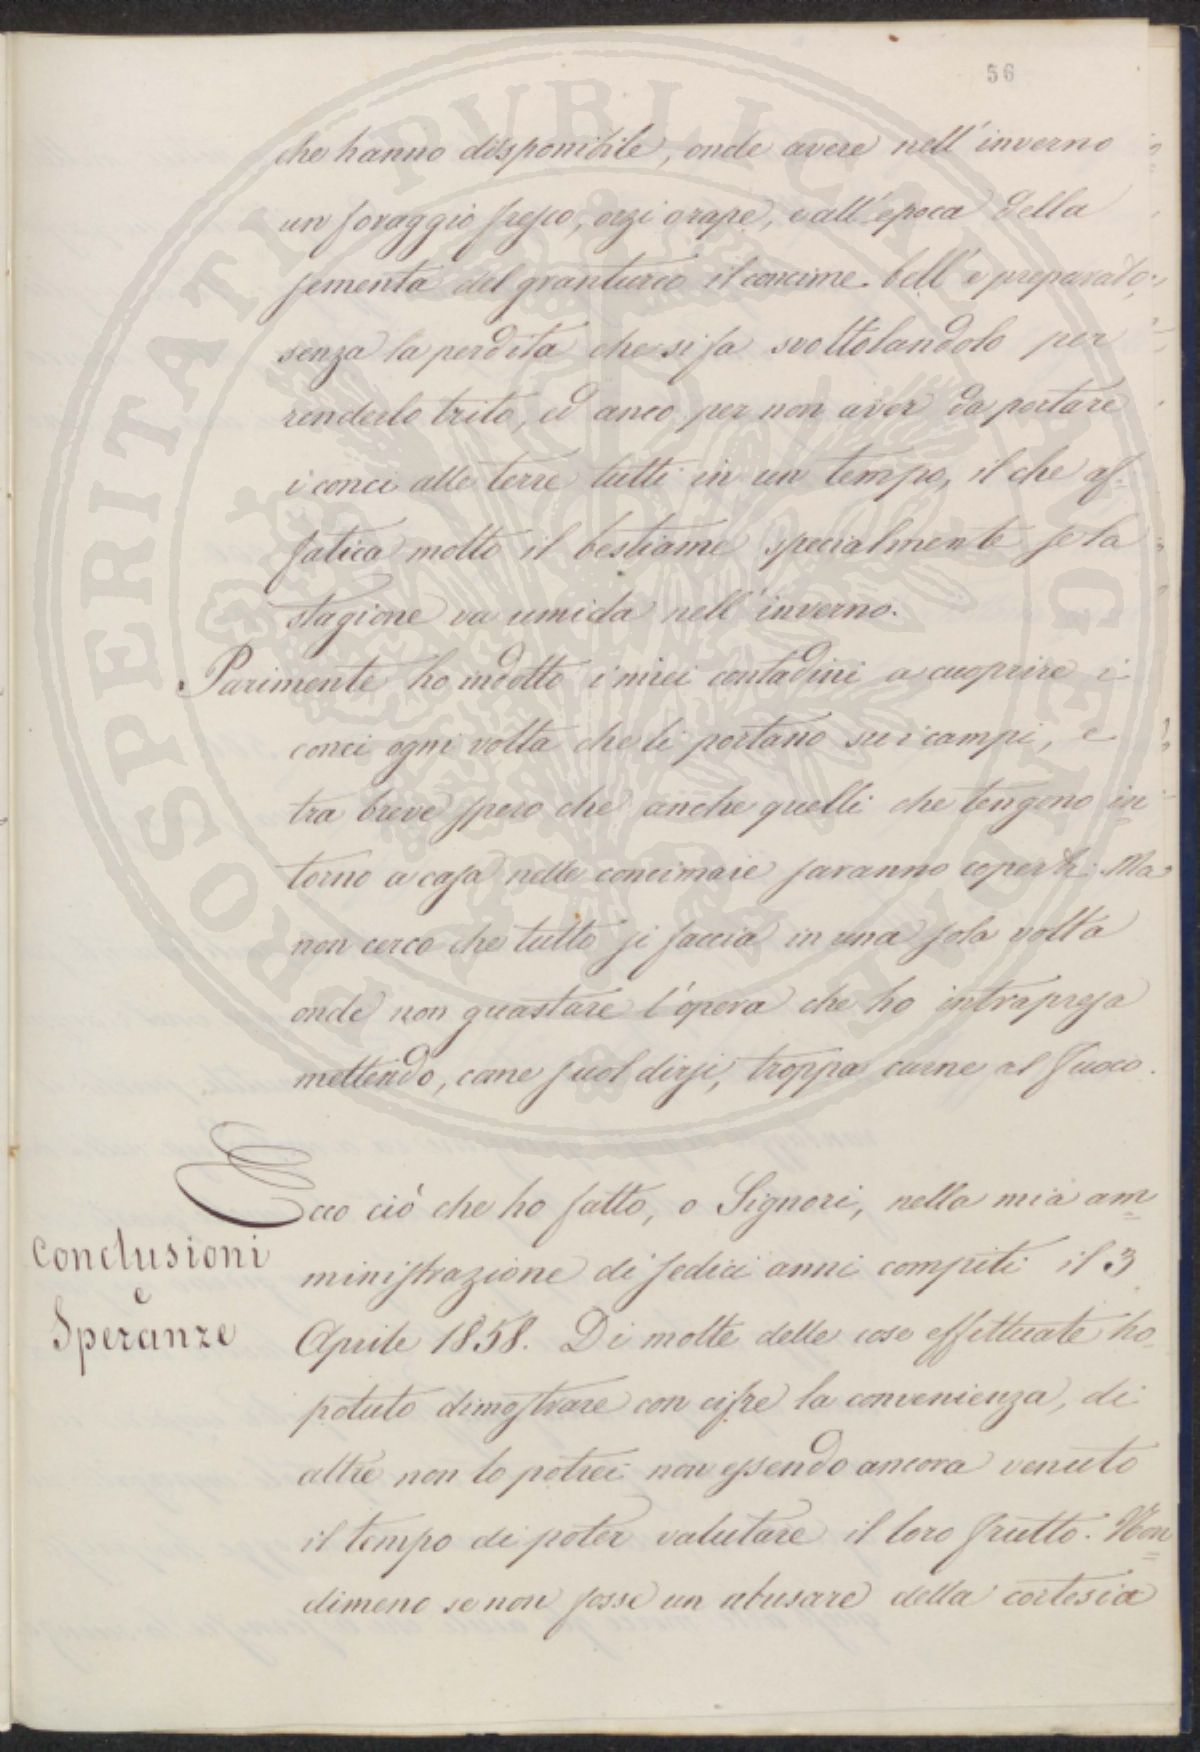 56
che hanno disponibile, onde avere nell'inverno
un foraggio fresco, orzi o rape, e all'epoca della
sementa del granturco il concime bell'e preparato,
senza la perdita che si fa svoltolandolo per
renderlo trito, ed anco per non aver da portare
i conci alle terre tutti in un tempo, il che af-
fatica molto il bestiame specialmente se la
stagione va umida nell'inverno.
Parimente ho indotto i miei contadini a cuoprire i
conci ogni volta che li portano su i campi, e
tra breve spero che anche quelli che tengono in
torno a casa nelle concimaie saranno coperti. Ma
non cerco che tutto si faccia in una sola volta
onde non guastare l'opera che ho intrapresa
mettendo, come suol dirsi, troppa carne al fuoco.
Ecco ciò che ho fatto, o Signori, nella mia am=
Conclusioni
e
Speranze
ministrazione di sedici anni compiti il 3
Aprile 1858. Di molte delle cose effettuate ho
potuto dimostrare con cifre la convenienza, di
altre non lo potrei non essendo ancora venuto
il tempo di poter valutare il loro frutto. Non=
dimeno se non fosse un abusare della cortesia
PROSPERITATI PUBLICAE AUGENDAE